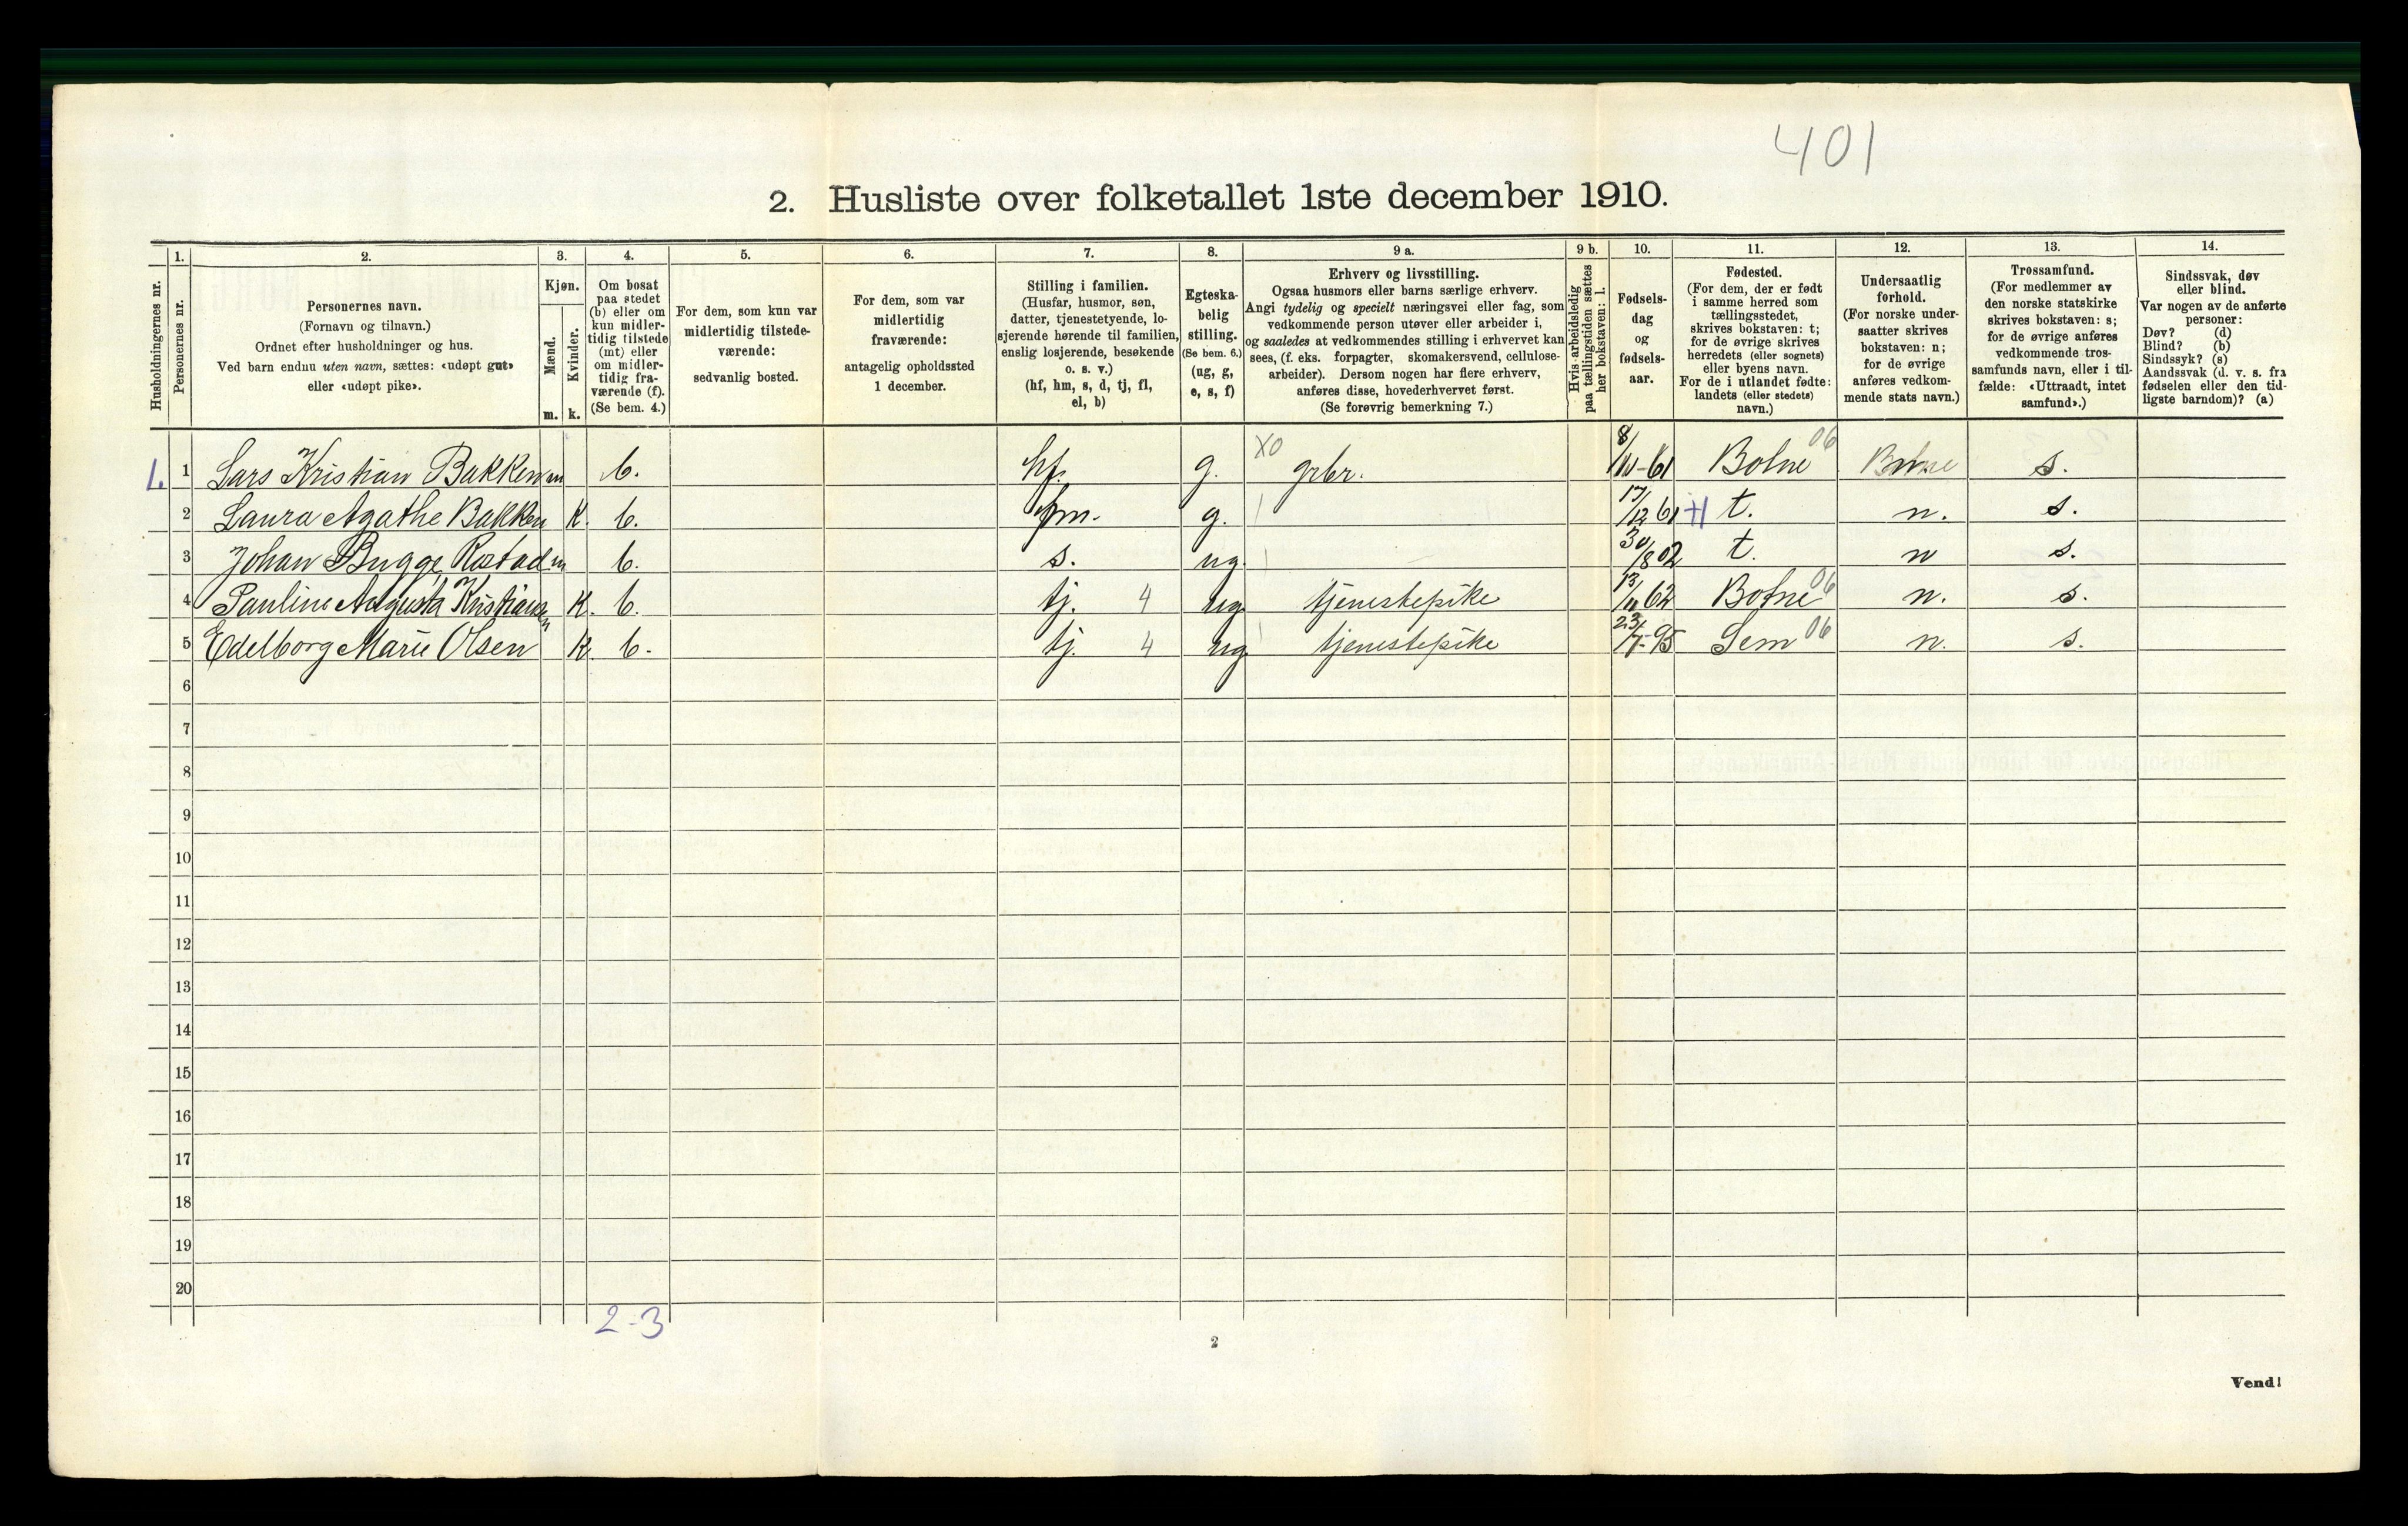 401
2. Husliste over folketallet 1ste december 1910.
Husholdningernes nr.
1.
Personernes nr.
2.
Personernes navn.
(Fornavn og tilnavn.)
Ordnet efter husholdninger og hus.
Ved barn endnu uten navn, sættes: «udøpt gut»
eller «udøpt pike».
3.
Kjøn.
Mænd.
Kvinder.
m. k.
4.
Om bosat
paa stedet
(b) eller om
kun midler-
tidig tilstede
(mt) eller
om midler-
tidig fra-
værende (f).
(Se bem. 4.)
5.
For dem, som kun var
midlertidig tilstede-
værende:
sedvanlig bosted.
6.
For dem, som var
midlertidig
fraværende:
antagelig opholdssted
1 december.
7.
Stilling i familien.
(Husfar, husmor, søn,
datter, tjenestetyende, lo-
sjerende hørende til familien,
enslig losjerende, besøkende
o. s. v.)
(hf, hm, s, d, tj, fl,
el, b)
8.
Egteska-
belig
stilling.
(Se bem. 6.)
(ug, g,
e, s, f)
9 a.
Erhverv og livsstilling.
Ogsaa husmors eller barns særlige erhverv.
Angi tydelig og specielt næringsvei eller fag, som
vedkommende person utøver eller arbeider i,
og saaledes at vedkommendes stilling i erhvervet kan
sees, (f. eks. forpagter, skomakersvend, cellulose-
arbeider). Dersom nogen har flere erhverv,
anføres disse, hovederhvervet først.
(Se forøvrig bemerkning 7.)
9 b.
Hvis arbeidsledig
paa tællingstiden sættes
her bokstaven: l.
10.
Fødsels-
dag
og
fødsels-
aar.
11.
Fødested.
(For dem, der er født
i samme herred som
tællingsstedet,
skrives bokstaven: t;
for de øvrige skrives
herredets (eller sognets)
eller byens navn.
For de i utlandet fødte:
landets (eller stedets)
navn.)
12.
Undersaatlig
forhold.
(For norske under-
saatter skrives
bokstaven: n;
for de øvrige
anføres vedkom-
mende stats navn.)
13.
Trossamfund.
(For medlemmer av
den norske statskirke
skrives bokstaven: s;
for de øvrige anføres
vedkommende tros-
samfunds navn, eller i til-
fælde: «Uttraadt, intet
samfund».)
14.
Sindssvak, døv
eller blind.
Var nogen av de anførte
personer:
Døv? (d)
Blind? (b)
Sindssyk? (s)
Aandssvak (d. v. s. fra
fødselen eller den tid-
ligste barndom)? (a)
1. 1 Lars Kristian Bakken m b. hf. g. X0 grbr. 8/10-61 Botne 06 s.
2 Laura Agathe Bakken K. b. hm. g. 17/12 61 t. n. s.
3 Johan Bugge Rostad m b. s. ug. 30/8 02 t. n s.
4 Pauline Augusta Kristiansen K. b. tj. 4 ug. tjenestepike 13/11 62 Botne 06 n. s.
5 Edelborg Marie Olsen K. b. tj. 4 ug. tjenestepike 23/7-95 Sem 06 n. s.
6
7
8
9
10
11
12
13
14
15
16
17
18
19
20
2-3
2
Vend!